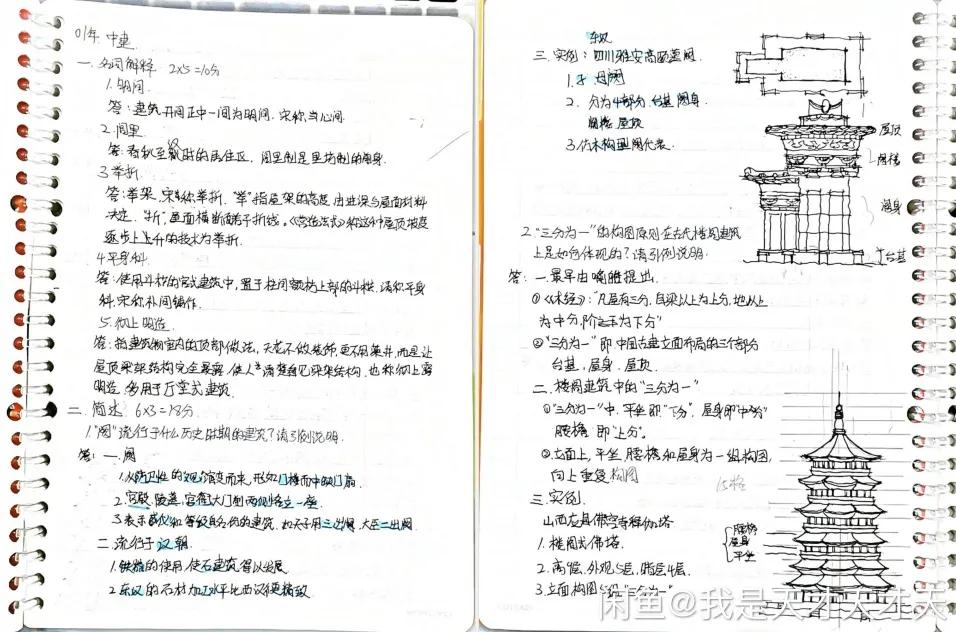 01年 中建
一、名词解释 2×5=10分
1.明间
答：建筑开间正中一间为明间，宋称当心间
2.闾里
答：春秋至汉时的居住区，闾里制是里坊制的前身
3.举折
答：举架，宋称举折，"举"指屋架的高度由进深与屋面材料
决定，"折"屋面横断面于折线。《营造法式》称这种屋顶坡度
逐步上升的技术为举折.
4.平身科
答：使用斗栱的宫式建筑中，置于柱间额枋上部的斗栱，清称平身
科，宋称补间铺作.
5.彻上明造
答：指建筑物室内的顶部做法，天花不做装饰，更不用藻井，而是让
屋顶梁架结构完全暴露，使人清楚看见梁架结构，也称彻上露
明造，多用于厅堂式建筑.
二、简述 6×3=18分
1."阙"流行于什么历史时期的建筑？请引例说明.
答：一、阙
1.从防卫性的"观"演变而来，形如门楼而中缺门扇.
2.宫殿、陵墓、官衙大门前两侧各立一座
3.表示威仪和等级身份的建筑，如天子用三出阙，大臣二出阙
二、流行于汉朝.
1.铁器的使用，使石建筑得以发展
2.东汉的石材加工水平比西汉更精致
东汉
三、实例：四川雅安高颐墓阙.
1.子母阙
2.分为4部分，台基 阙身
阙楼 屋顶
3.仿木构型阙代表.
屋顶
阙楼
阙身
台基
2."三分为一"的构图原则在古代楼阁建筑
上是如何体现的？请引例说明.
答：一、最早由喻皓提出.
①《木经》："凡屋有三分，自梁以上为上分，地以上
为中分，阶为下分"
②"三分为一"即中国古建立面布局的三个部分
台基、屋身、屋顶.
二、楼阁建筑中的"三分为一"
①"三分为一"中，平坐即"下分"，屋身即"中分"
腰檐即"上分"。
②立面上，平坐、腰檐和屋身为一组构图，
向上重复构图
三、实例.
山西应县佛宫寺释伽塔
1.楼阁式佛塔.
2.高9层，外观5层，暗层4层.
3.立面构图"三分为一"
腰檐
屋身
平坐
闲鱼@我是天才天才天